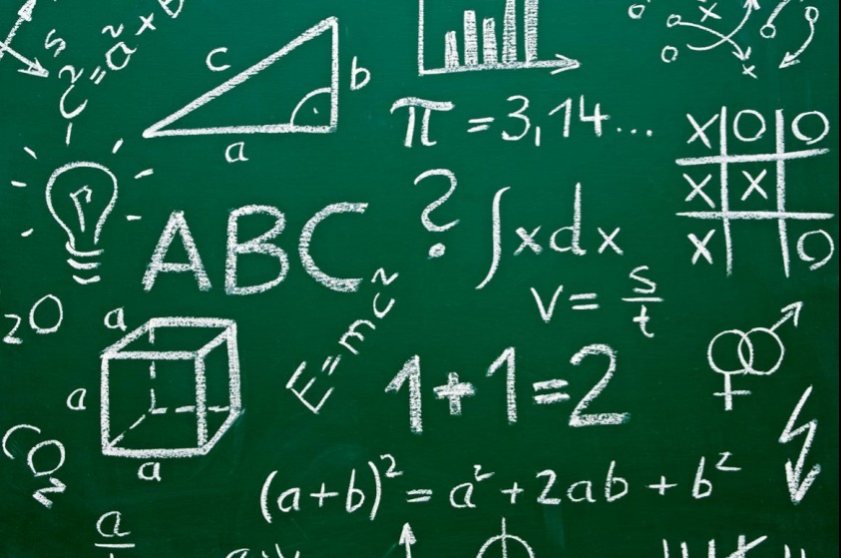 c² = a² + b
c
b
a
π = 3,14...
X O O
X X
X O
?
ABC
∫xdx
v = s/t
E=mc²
1+1=2
a
a
a
CO₂
(a+b)² = a² + 2ab + b²
a